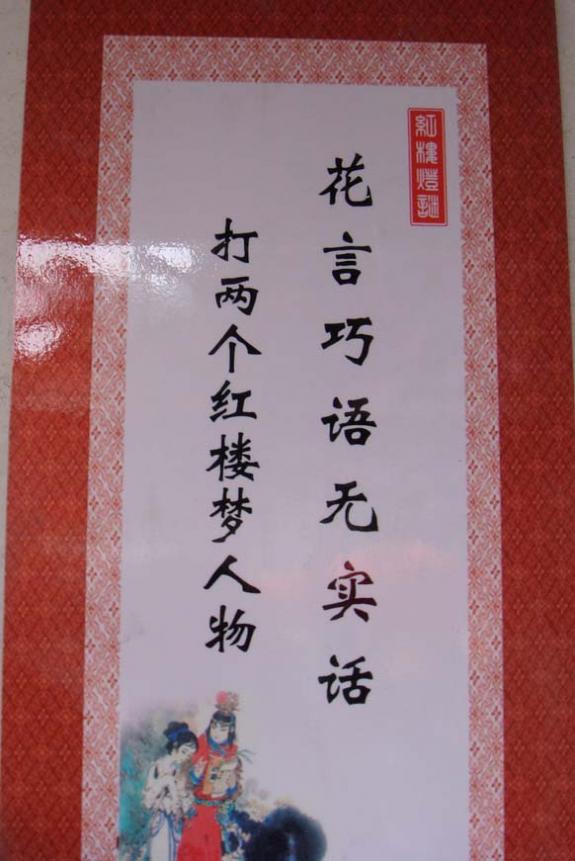 紅樓燈謎
花言巧语无实话
打两个红楼梦人物